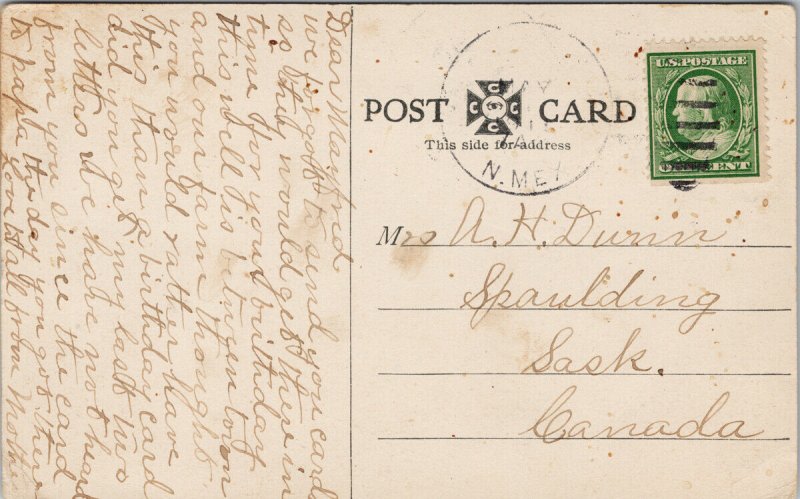 Dear Mayford
we forgot to send you card
so they would get there in
time for your birthday
this bel is between town
and our farm thought
you would rather have
this than a birthday card
did you get my last two
letters we have not heard
from you since the card
to papa the day you got there
love to all from Mother
POST CARD
C C C C
This side for address
N. MEX
U.S. POSTAGE
ONE CENT
Mrs A. H. Dunn
Spaulding
Sask.
Canada